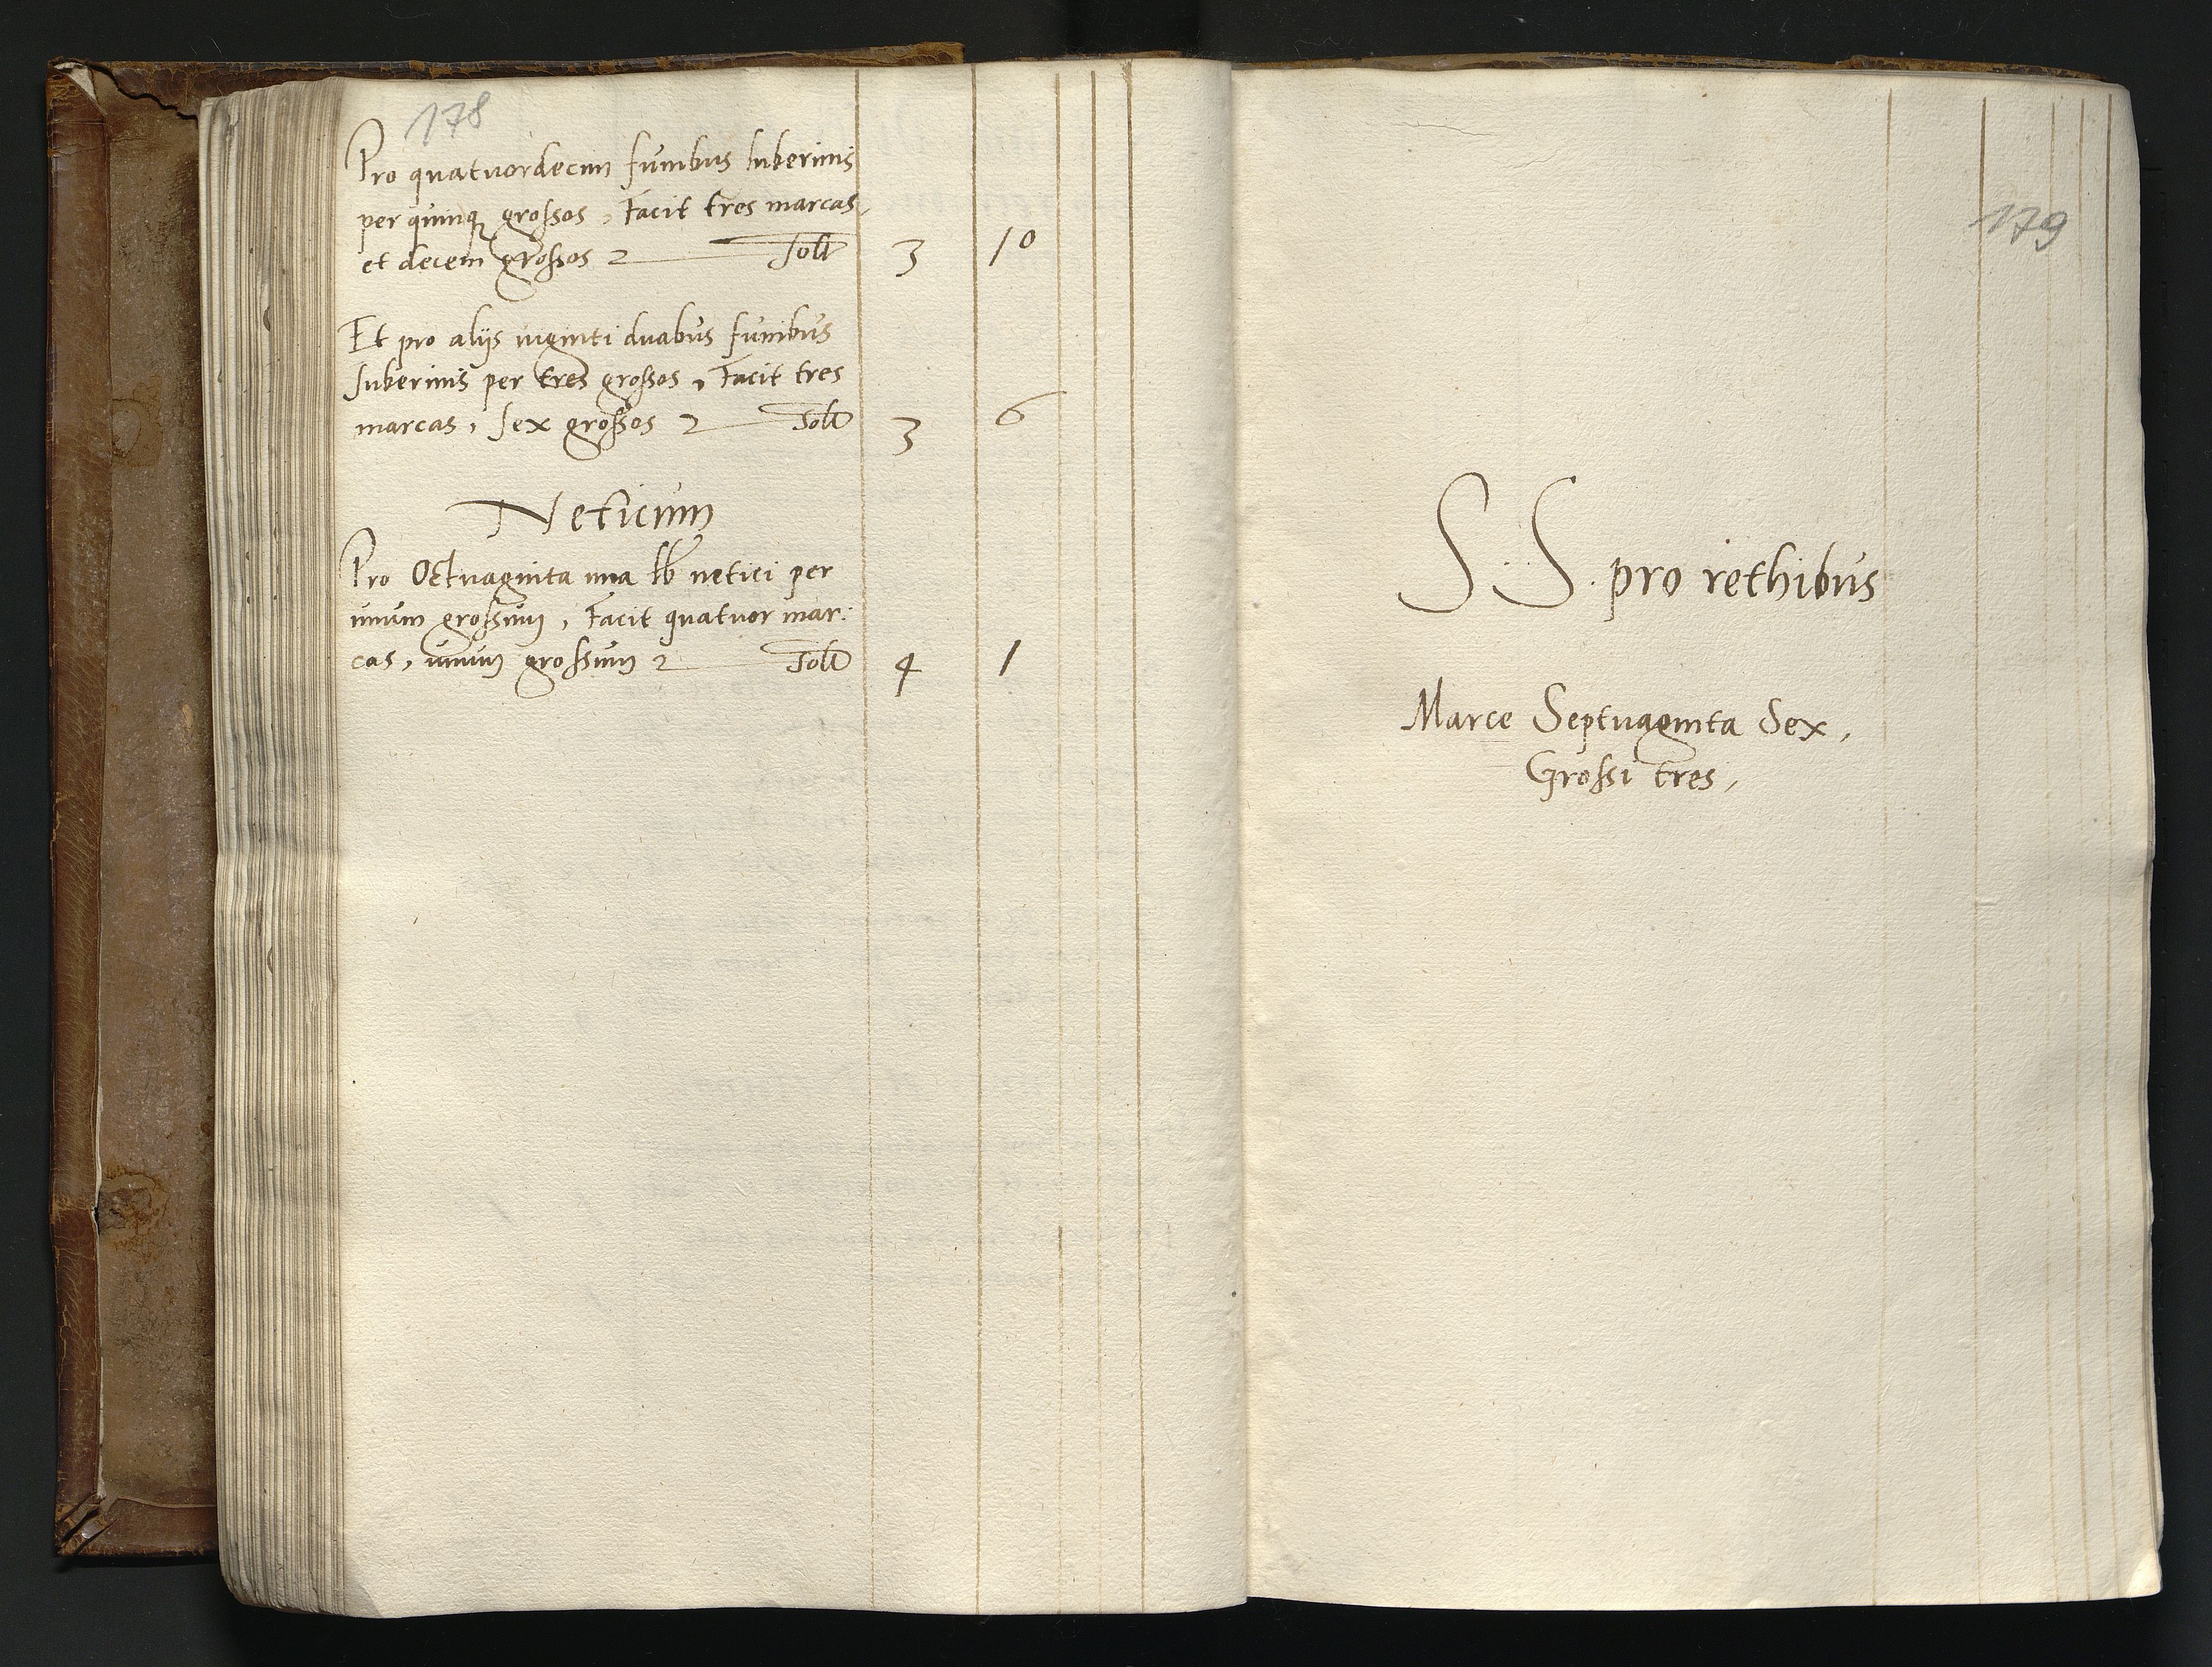 178
Pro quatuordecim funibus suberinis
per quinq grossos, Facit tres marcas,
et decem grossos 2 Solt 3 10
Et pro alijs viginti duabus funibus
suberinis per tres grossos, Facit tres
marcas, sex grossos 2 Solt 3 6
Neticum
Pro Octuaginta una lb netici per
unum grossum, Facit quatuor mar:
cas, unum grossum 2 Solt 4 1
179
S. S. pro rethibus
Marce Septuaginta Sex,
Grossi tres,